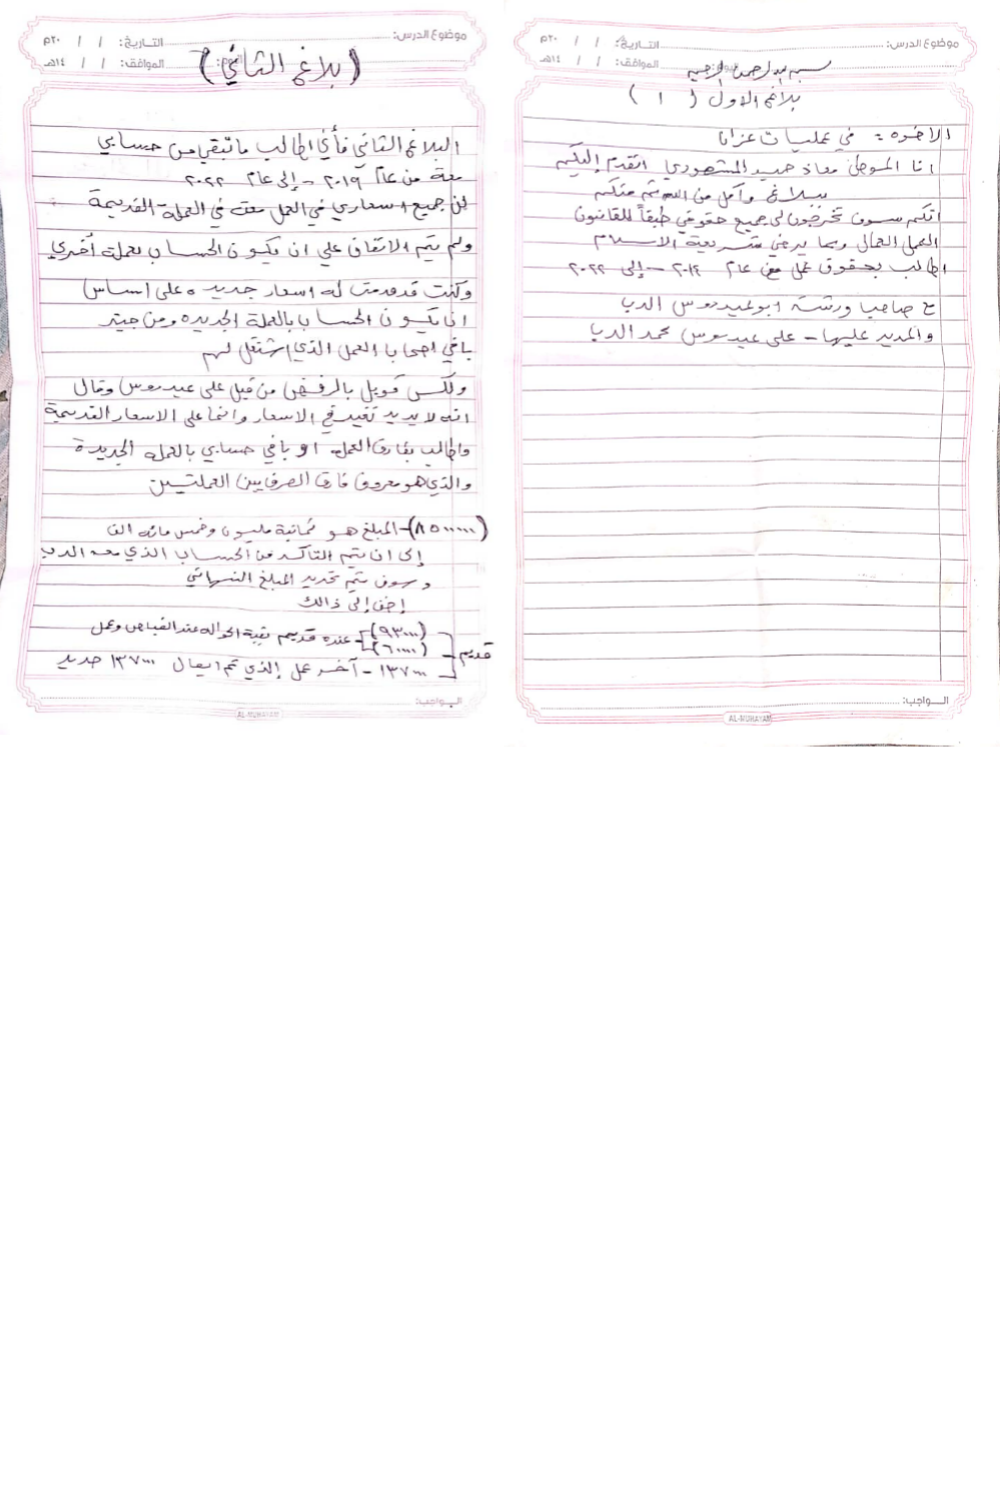 موضوع الدرس: التاريخ: / / ٢٠م
الموافق: / / ١٤هـ
بسم الله الرحمن الرحيم
بلاغ الاول ( ١ )
الاخوه : في عمليات عزانا
انا المسوطن معاذ حميد المشهودي اتقدم إليكم
ببلاغي وآمل من الله ثم منكم
انكم سوف تخرجون لي جميع حقوقي طبقاً للقانون
العمل العمال وبما يرضي شريعة الاسلام
اطالب بحقوق عمل من عام ٢٠١٤ - إلى ٢٠٢٢
ع صاحب ورشة ابو عيدروس الدبا
والمدير عليها - علي عيدروس محمد الدبا
الــواجب:
AL-MUHAYAM
موضوع الدرس: التاريخ: / / ٢٠م
الموافق: / / ١٤هـ
(بلاغ الثاني)
البلاغ الثاني فأني اطالب ما تبقى من حسابي
معة من عام ٢٠١٩ - إلى عام ٢٠٢٢
لان جميع اسعاري في العمل معه في العملة القديمة
ولم يتم الاتفاق على ان يكون الحساب بعملة أخرى
وكنت قد قدمت له اسعار جديده على اساس
ان يكون الحساب بالعملة الجديده ومن حيث
باقي اصحاب العمل الذي اشتغل لهم
ولكن قوبل بالرفض من قبل علي عيدروس وقال
انه لا يريد تغيير في الاسعار وانما على الاسعار القديمة
واطالب بفارق العمله او باقي حسابي بالعمله الجديدة
والذي هو معروف فارق الصرف بين العملتين
(٨٥٠٠٠٠٠) - المبلغ هو ثمانية مليون وخمس مائه الف
إلى ان يتم التأكد من الحساب الذي معه الدبا
وسوف يتم تحديد المبلغ النهائي
إضف إلى ذالك
(٩٣٠٠٠) - عنده قديم بقية الحواله عند القباص وعمل
(٦٠٠٠٠)
قديم
١٣٧٠٠٠ - آخر عمل الذي تم ايصال ١٣٧٠٠٠ جديد
الــواجب:
AL-MUHAYAM